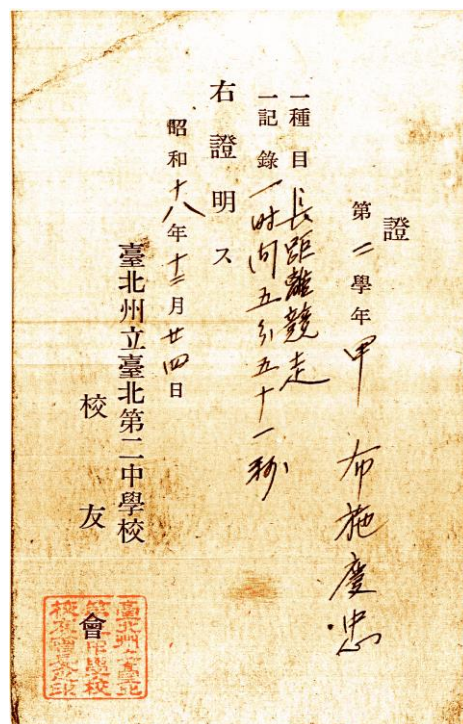 證
第二學年甲 布施慶忠
一種目 長距離競走
一記錄 一时间五分五十一秒
右證明ス
昭和十八年十二月廿四日
臺北州立臺北第二中學校
校友會